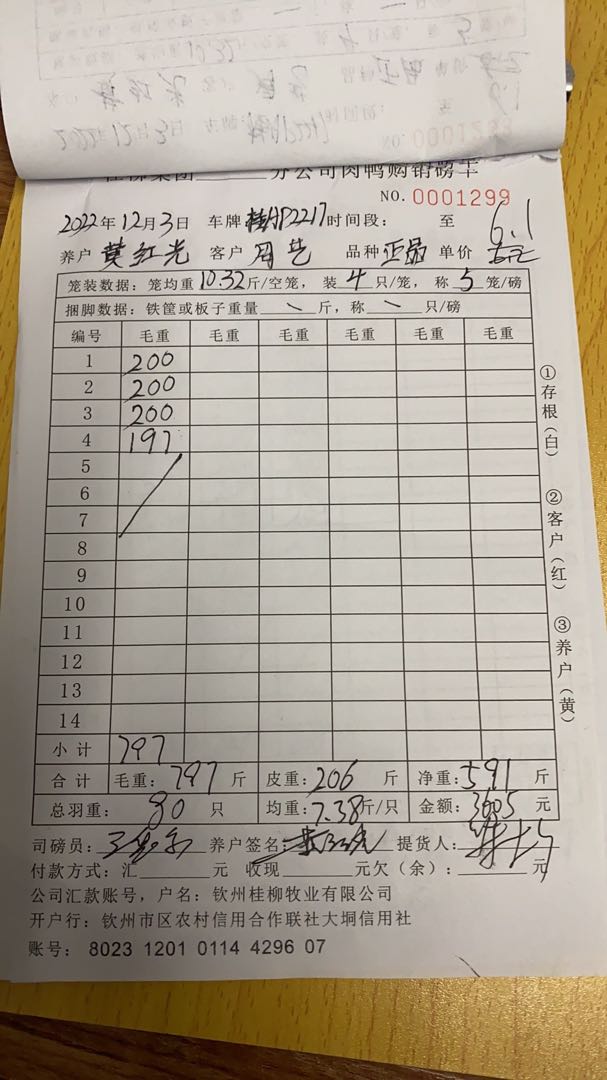 10.32
4
5
2022年12月3日 车牌
NO. 0001299
桂柳集团 分公司肉鸭购销磅单
NO. 0001299
2022年12月3日 车牌 桂AP2217 时间段: 至
养户 黄红光 客户 周艺 品种 正品 单价 6.1
笼装数据: 笼均重 10.32 斤/空笼, 装 4 只/笼, 称 5 笼/磅
捆脚数据: 铁筐或板子重量 斤, 称 只/磅
编号 毛重 毛重 毛重 毛重 毛重 毛重
1 200
2 200
3 200
4 197
5
6
7
8
9
10
11
12
13
14
小计 797
合计 毛重: 797 斤 皮重: 206 斤 净重: 591 斤
总羽重: 80 只 均重: 7.38 斤/只 金额: 3605 元
司磅员: 养户签名: 黄红光 提货人:
付款方式: 汇 元 收现 元欠(余): 元
公司汇款账号, 户名: 钦州桂柳牧业有限公司
开户行: 钦州市区农村信用合作联社大垌信用社
账号: 8023 1201 0114 4296 07
①存根(白)
②客户(红)
③养户(黄)